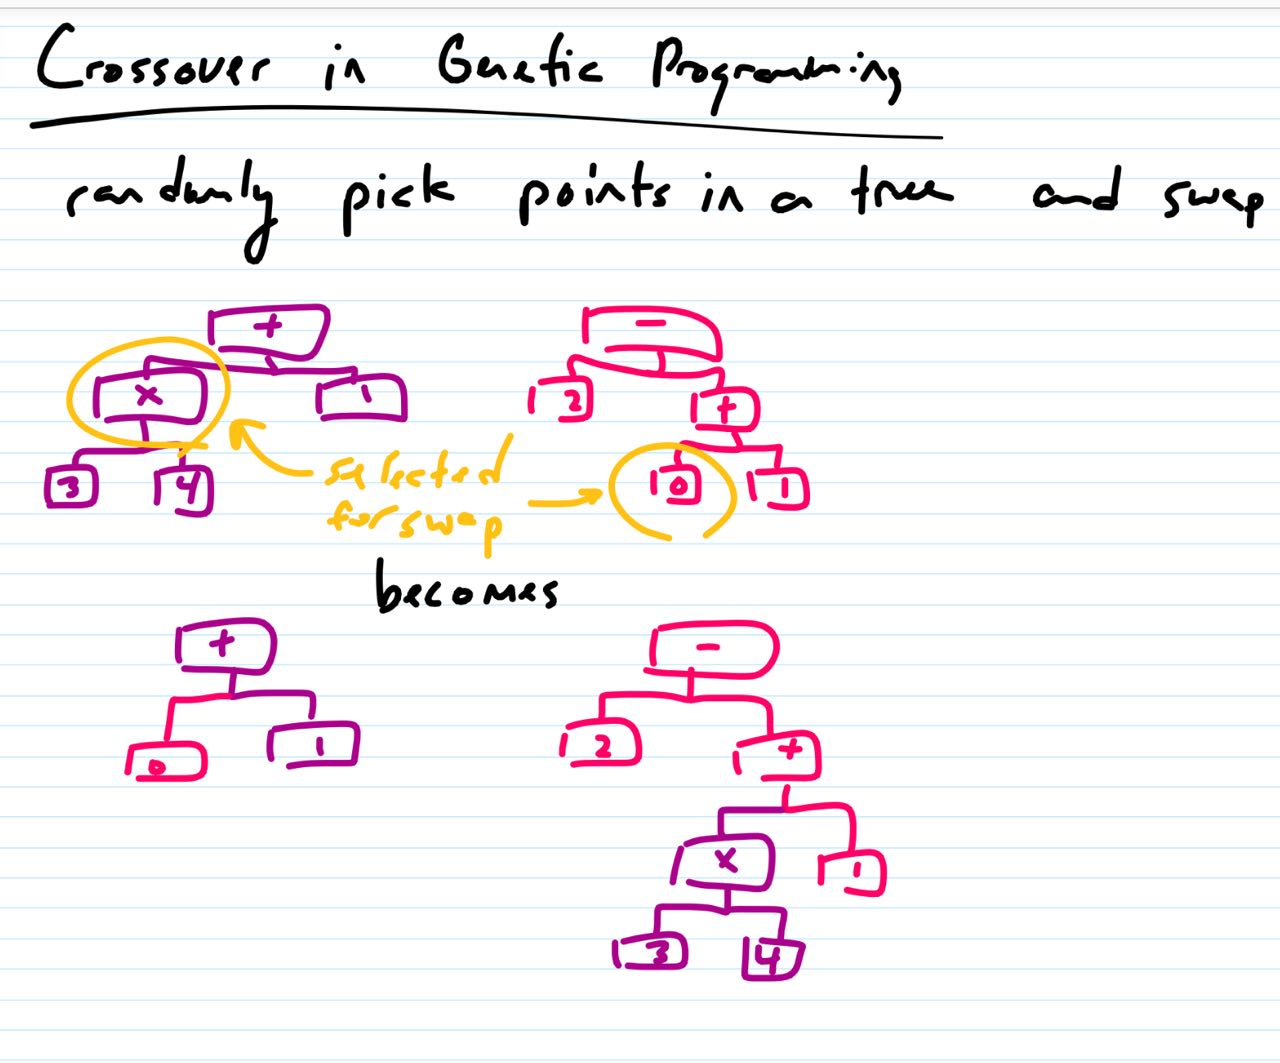 Crossover in Genetic Programming
randomly pick points in a tree and swap
+ −
x 1 2 +
3 4 0 1
selected
for swap
becomes
+ −
0 1 2 +
x 1
3 4